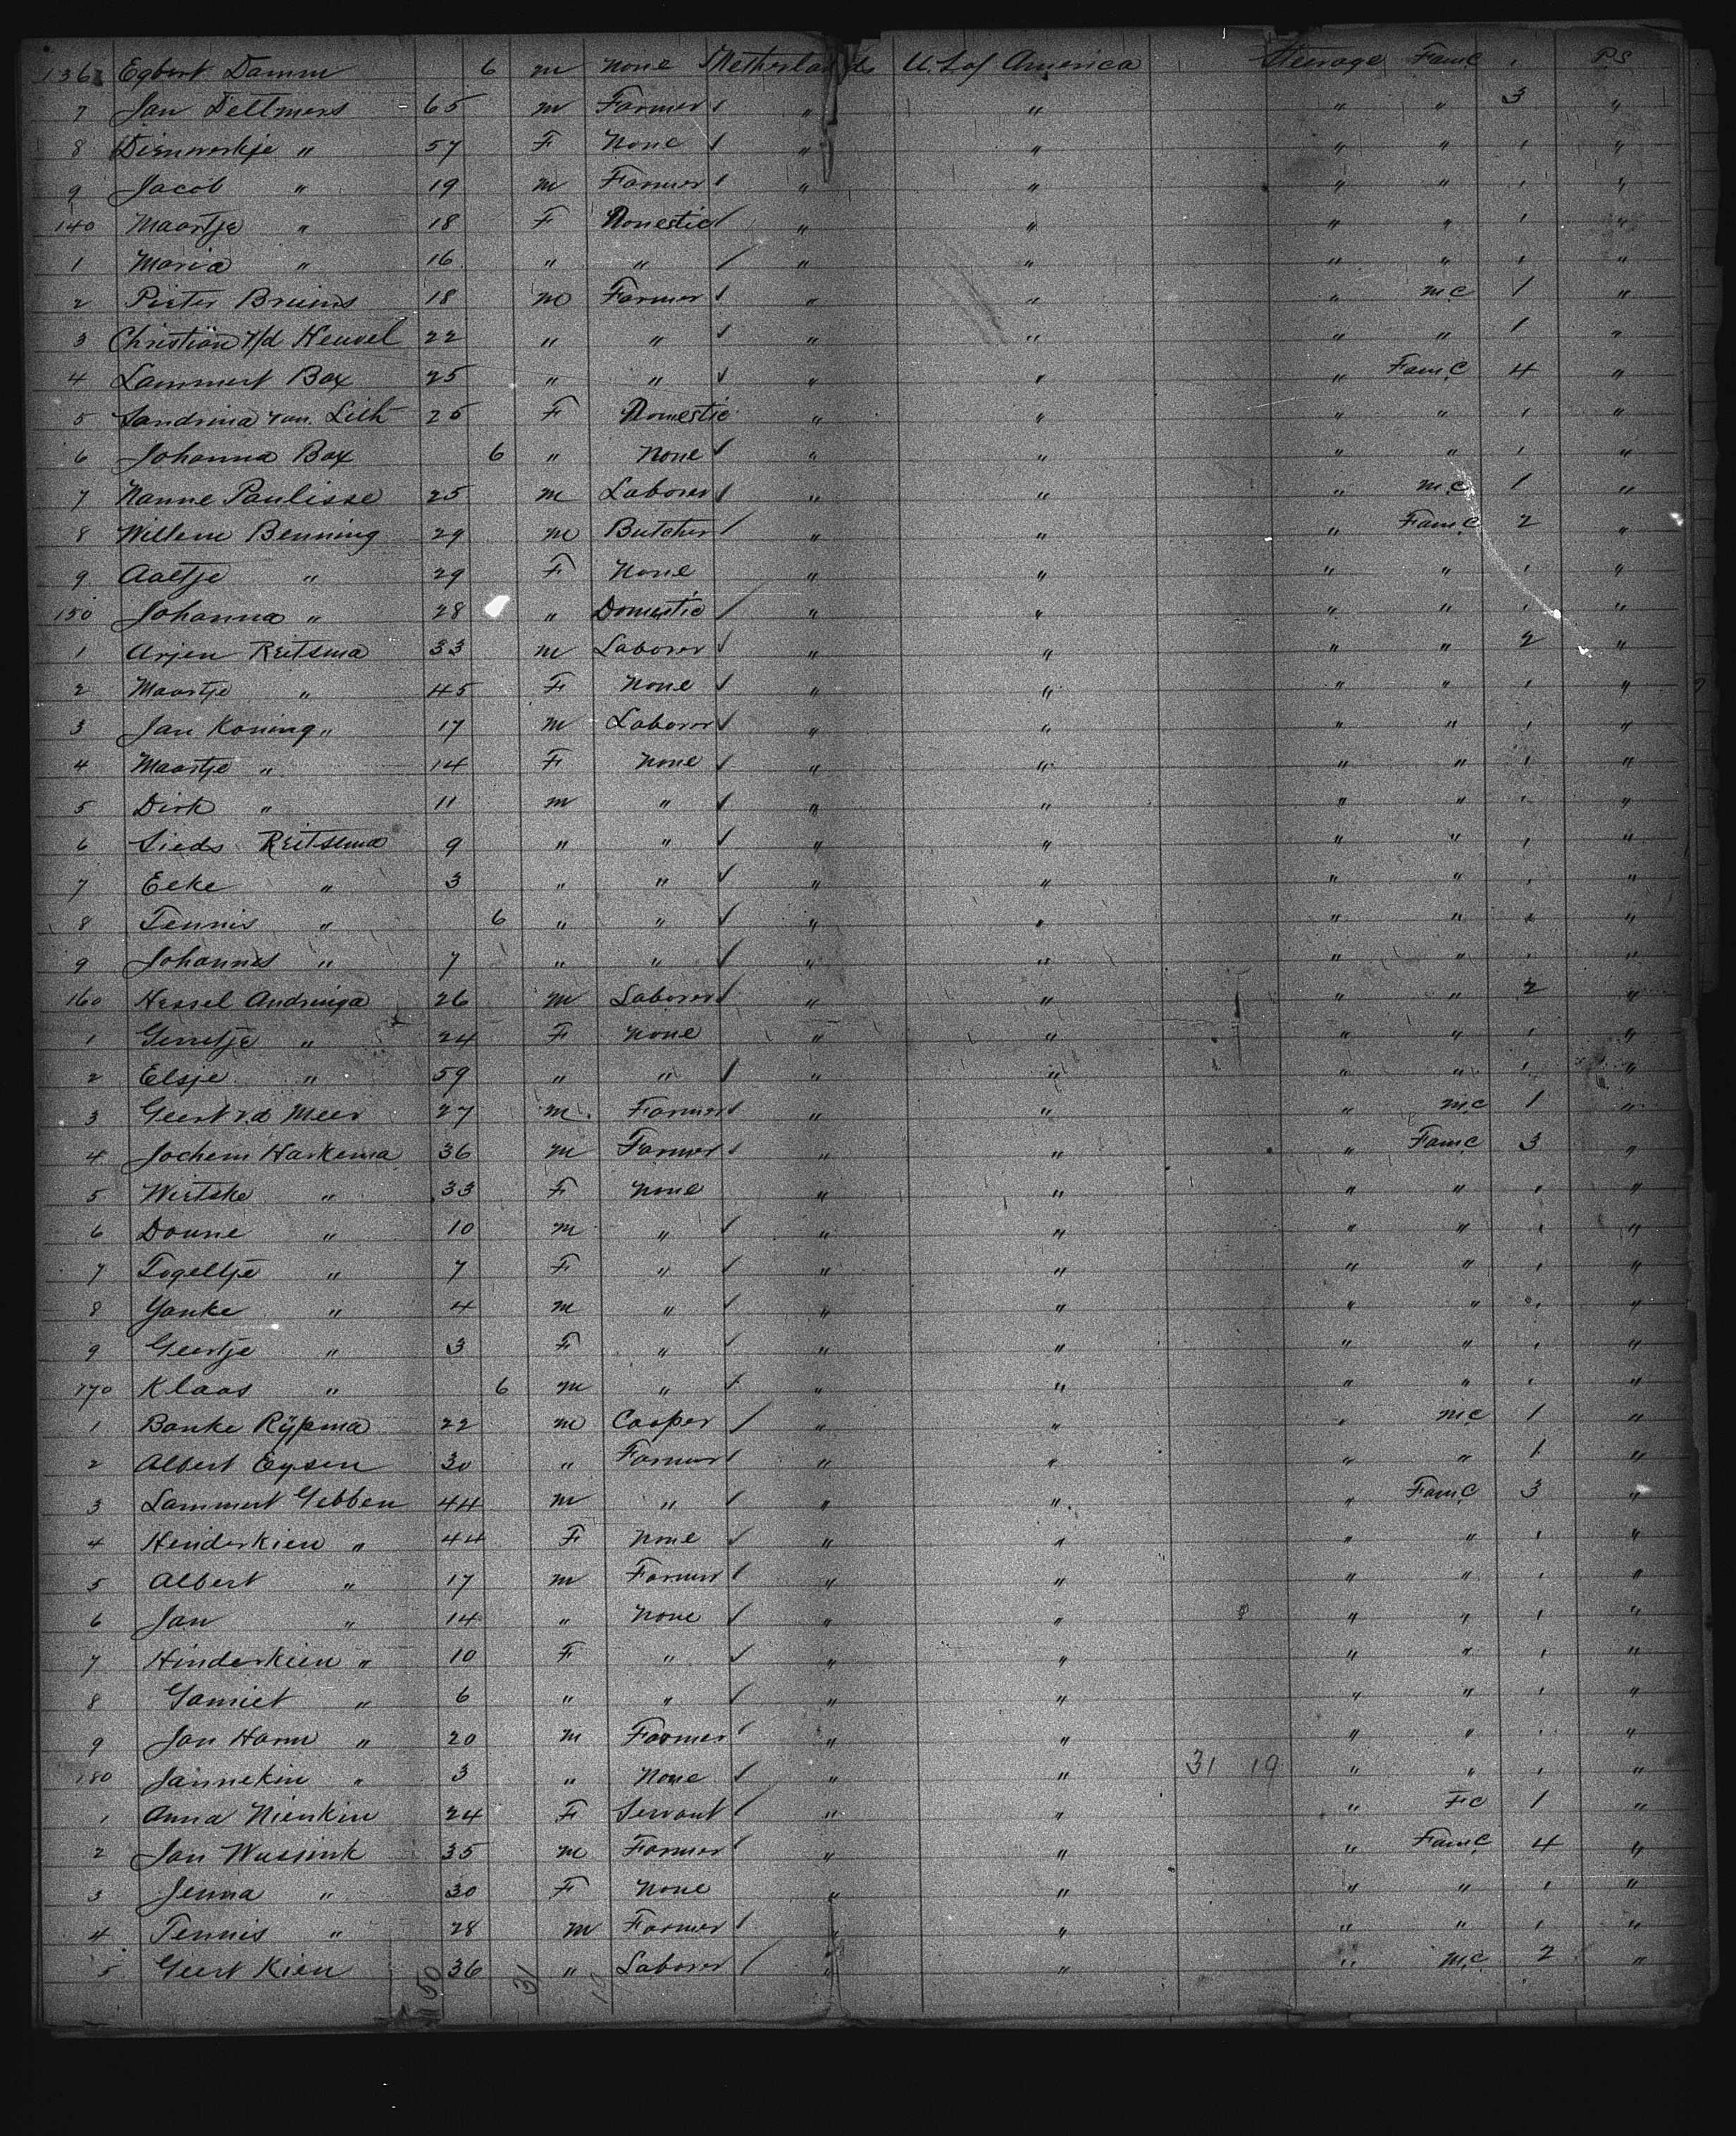 136 Egbert Damm 6 m None Netherlands U.S of America Steerage Fam.C ' PS
7 Jan Dettmers 65 m Farmer " " " " 3 "
8 Dienwerkje " 57 F None " " " " ' "
9 Jacob " 19 m Farmer " " " " ' "
140 Maartje " 18 F Domestic " " " " ' "
1 Maria " 16 " " " " " " ' "
2 Pieter Bruins 18 m Farmer " " " m.c 1 "
3 Christian v/d Heuvel 22 " " " " " " 1 "
4 Lammert Bax 25 " " " " " Fam.C 4 "
5 Sandrina van Lith 25 F Domestic " " " " ' "
6 Johanna Bax 6 " None " " " " ' "
7 Nanne Paulisse 25 m Laborer " " " m.c 1 "
8 Willem Benning 29 m Butcher " " " Fam.C 2 "
9 Aaltje " 29 F None " " " " ' "
150 Johanna " 28 " Domestic " " " " ' "
1 Arjen Reitsma 33 m Laborer " " " " 2 "
2 Maartje " 45 F None " " " " ' "
3 Jan Koning " 17 m Laborer " " " " ' "
4 Maartje " 14 F None " " " " ' "
5 Dirk " 11 m " " " " " ' "
6 Sieds Reitsma 9 " " " " " " ' "
7 Eeke " 3 " " " " " " ' "
8 Tennis " 6 " " " " " " ' "
9 Johannes " 7 " " " " " " ' "
160 Hessel Andringa 26 m Laborer " " " " 2 "
1 Gerretje " 24 F None " " " " ' "
2 Elsje " 59 " " " " " " ' "
3 Geert v.d Meer 27 m. Farmer " " " m.c 1 "
4 Jochem Harkema 36 m Farmer " " " Fam.C 3 "
5 Wietske " 33 F None " " " " ' "
6 Doune " 10 m " " " " " ' "
7 Togeltje " 7 F " " " " " ' "
8 Yanke " 4 m " " " " " ' "
9 Geertje " 3 F " " " " " ' "
170 Klaas " 6 m " " " " " ' "
1 Banke Rÿpma 22 m Cooper " " " m.c 1 "
2 Albert Eysen 30 " Farmer " " " " 1 "
3 Lammert Gebben 44 m " " " " Fam.C 3 "
4 Henderkien " 44 F None " " " " ' "
5 Albert " 17 m Farmer " " " " ' "
6 Jan " 14 " None " " " " ' "
7 Hinderkien " 10 F " " " " " ' "
8 " 6 " " " " " " ' "
9 Jan Harm " 20 m Farmer " " " " ' "
180 Jannekin " 3 " None " " 31 19 " " ' "
1 Anna Nienkin 24 F Servant " " " F.c 1 "
2 Jan Wussink 35 m Farmer " " " Fam.C 4 "
3 Jenna " 30 F None " " " " ' "
4 Tennis " 28 m Farmer " " " " ' "
5 Geert Kien 36 " Laborer " " " m.c 2 "
50 31 19